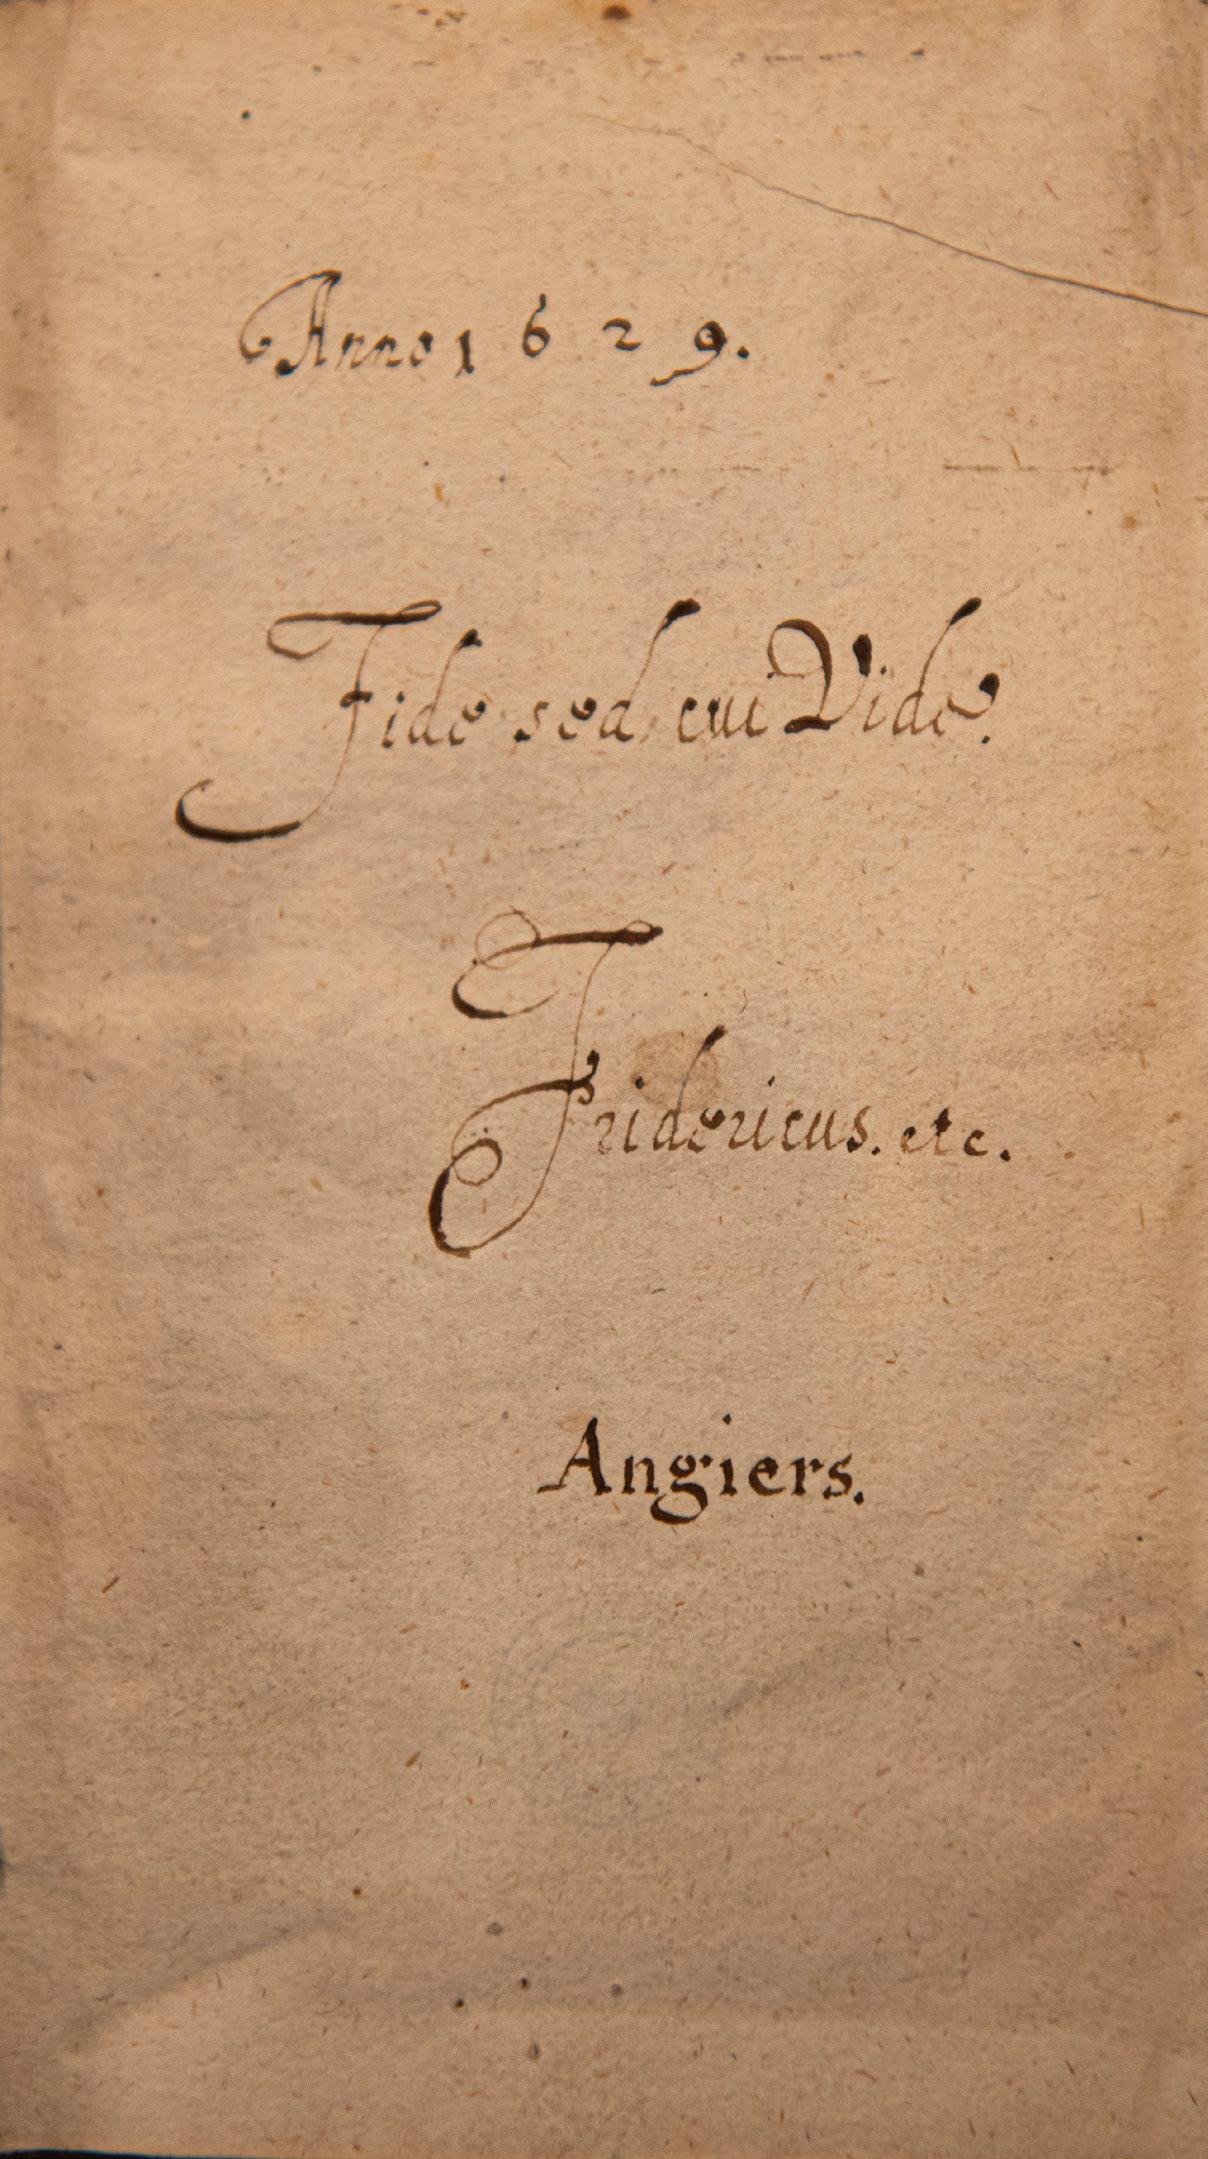 Anno 1629.
Fide sed cui Vide.
Fridericus. etc.
Angiers.